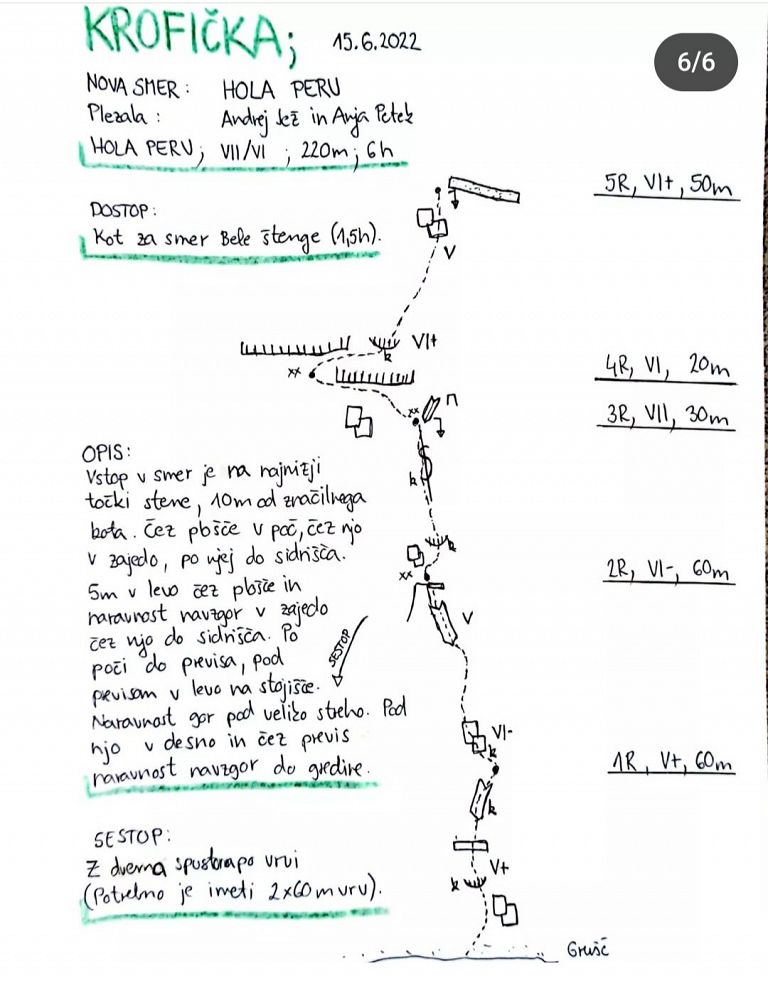 KROFIČKA; 15.6.2022
6/6
NOVA SMER: HOLA PERU
Plezala: Andrej Jež in Anja Petek
HOLA PERU; VII/VI ; 220m; 6h
5R, VI+, 50m
DOSTOP:
Kot za smer Bele štenge (1,5h).
V
VI+
k
4R, VI, 20m
xx
xx
n
3R, VII, 30m
OPIS:
Vstop v smer je na najnižji
točki stene, 10m od značilnega
kota. Čez plošče v poč, čez njo
v zajedo, po njej do sidrišča.
5m v levo čez plošče in
naravnost navzgor v zajedo
čez njo do sidrišča. Po
poči do previsa, pod
previsom v levo na stojišče.
Naravnost gor pod veliko streho. Pod
njo v desno in čez previs
naravnost navzgor do gredine.
k
k
xx
2R, VI-, 60m
V
SESTOP
VI-
k
1R, V+, 60m
k
SESTOP:
Z dvema spustoma po vrvi
(Potrebno je imeti 2x60m vrv).
V+
k
Grušč